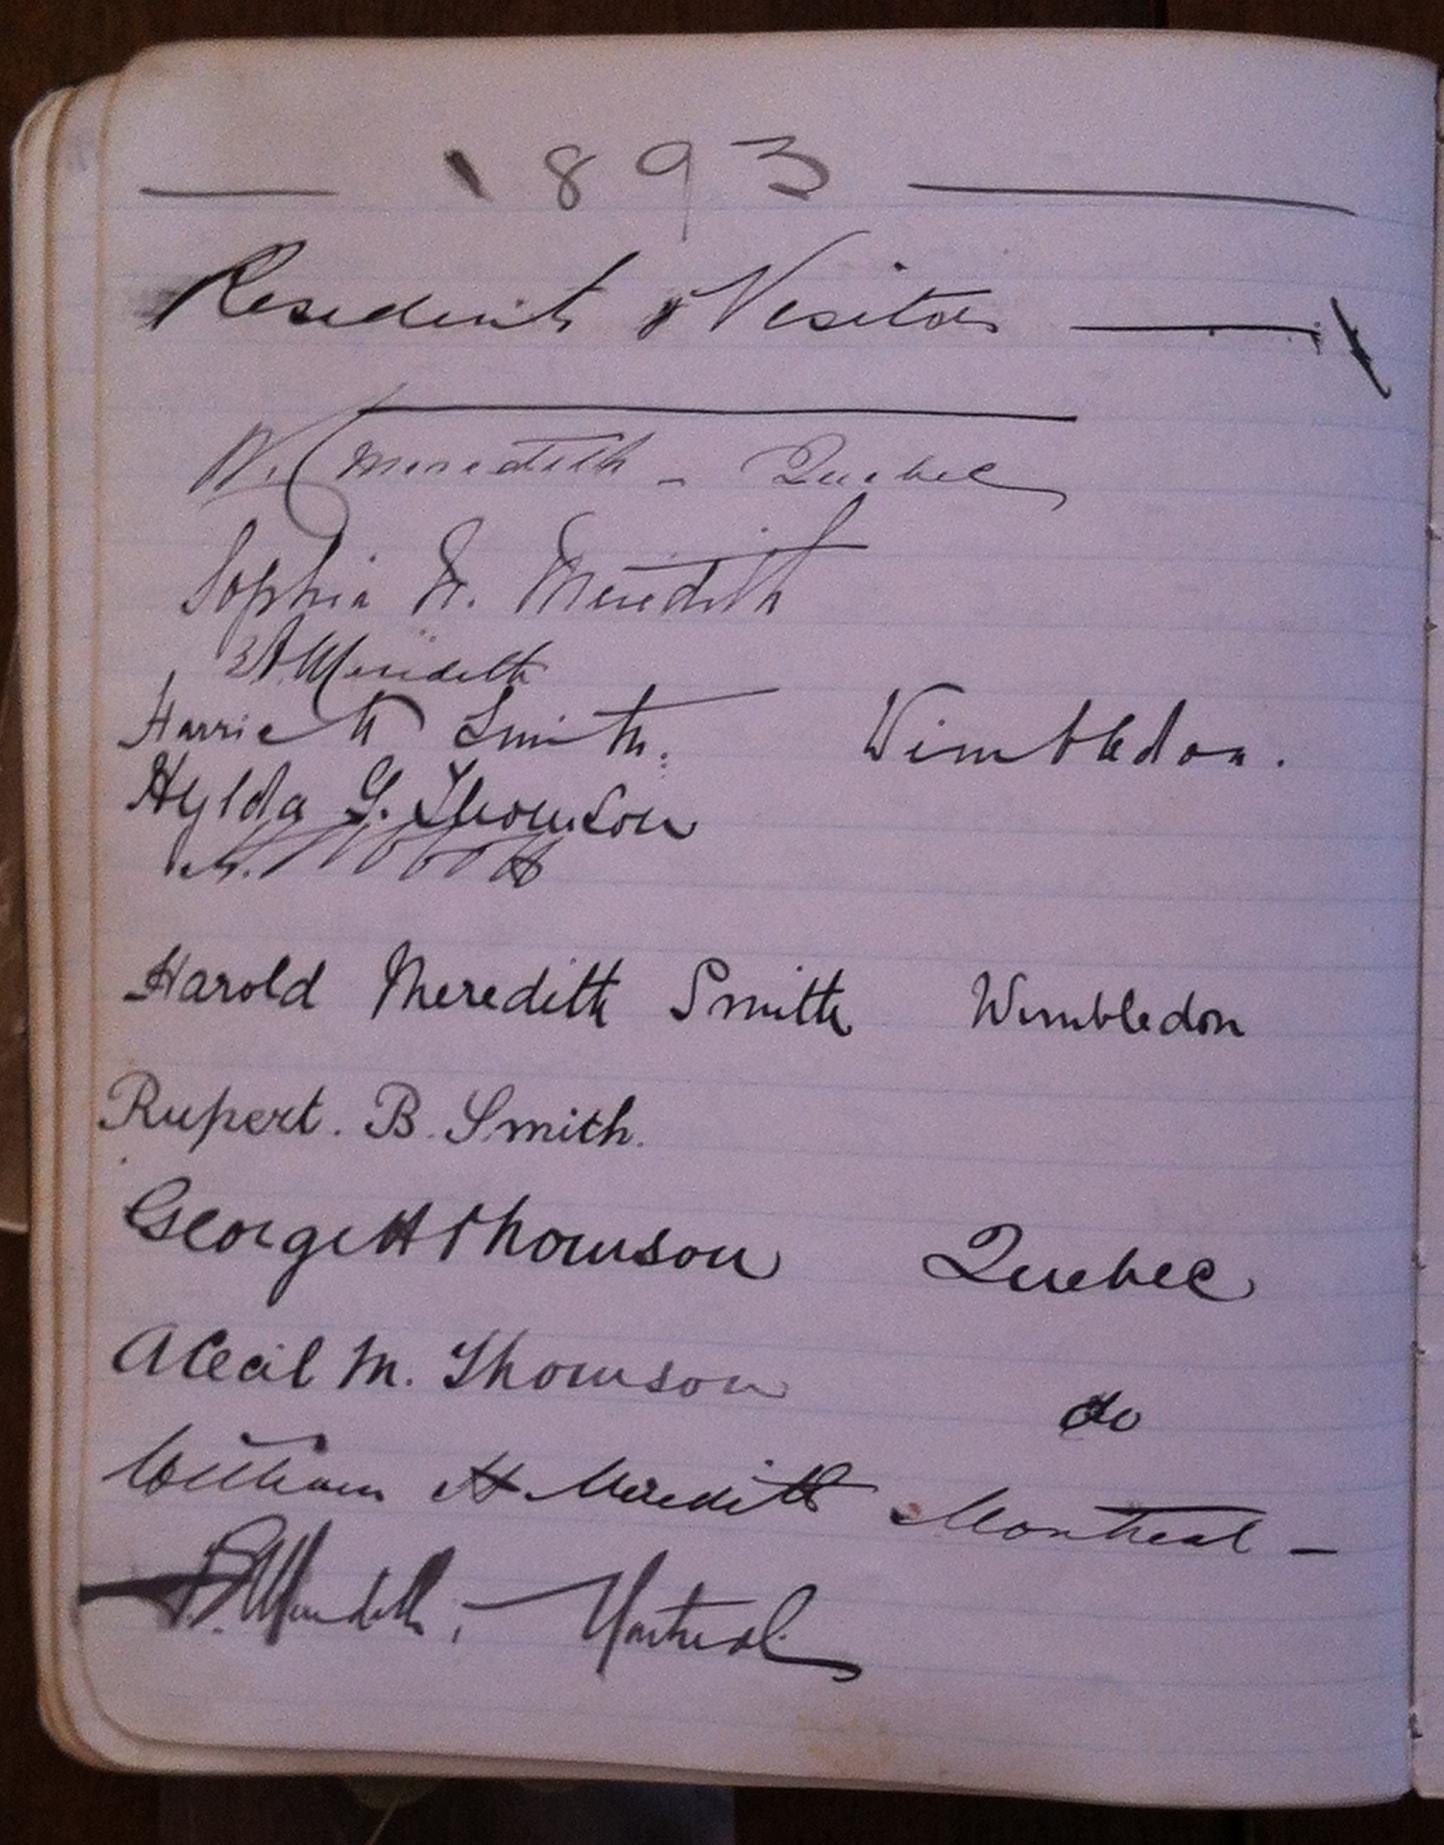 1893
Residents & Visitors
W. C. Meredith - Quebec
Sophia N. Meredith
E A Meredith
Harriett Smith. Wimbledon.
Hylda G. Thomson
Harold Meredith Smith Wimbledon
Rupert. B. Smith.
George H Thomson Quebec
A Cecil M. Thomson do
William H Meredith Montreal -
Meredith, - Montreal